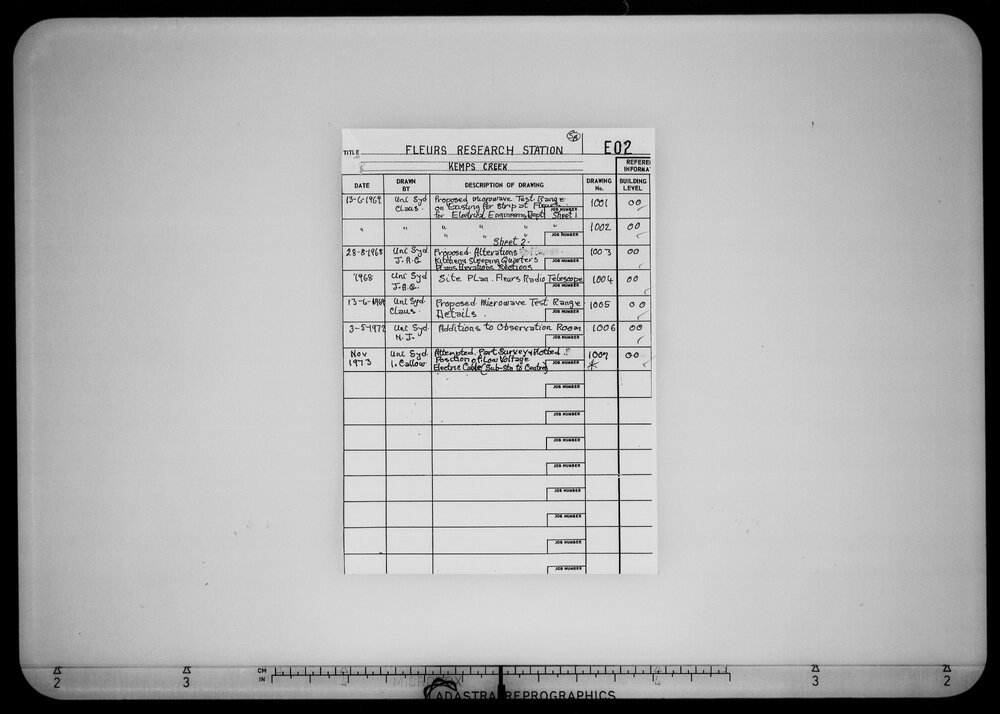 5A
TITLE FLEURS RESEARCH STATION E02
KEMPS CREEK
REFERE
INFORMA
DATE DRAWN BY DESCRIPTION OF DRAWING DRAWING No. BUILDING LEVEL
13-6-1969 Uni Syd Proposed Microwave Test Range 1001 00
Claus. on Existing Air Strip at Fleurs
for Electrical Engineering Dept Sheet 1 JOB NUMBER
" " " " " " 1002 00
" " " JOB NUMBER
Sheet 2.
28-8-1968 Uni Syd Proposed Alterations 1003 00
J.A.G Kitchen & Sleeping Quarters JOB NUMBER
Plans Elevations Sections
1968 Uni Syd Site Plan. Fleurs Radio Telescope 1004 00
J.A.G. JOB NUMBER
13-6-1969 Uni Syd. Proposed Microwave Test Range 1005 00
Claus. Details. JOB NUMBER
3-5-1972 Uni Syd. Additions to Observation Room 1006 00
N.J. JOB NUMBER
Nov Uni Syd. Attempted Part Survey & Plotted 1007 00
1973 I. Callow Position of Low Voltage JOB NUMBER *
Electric Cable (Sub-Stn to Centre)
JOB NUMBER
JOB NUMBER
JOB NUMBER
JOB NUMBER
JOB NUMBER
JOB NUMBER
JOB NUMBER
JOB NUMBER
2 3 CM 3 2
IN 4 4
ADASTRA REPROGRAPHICS